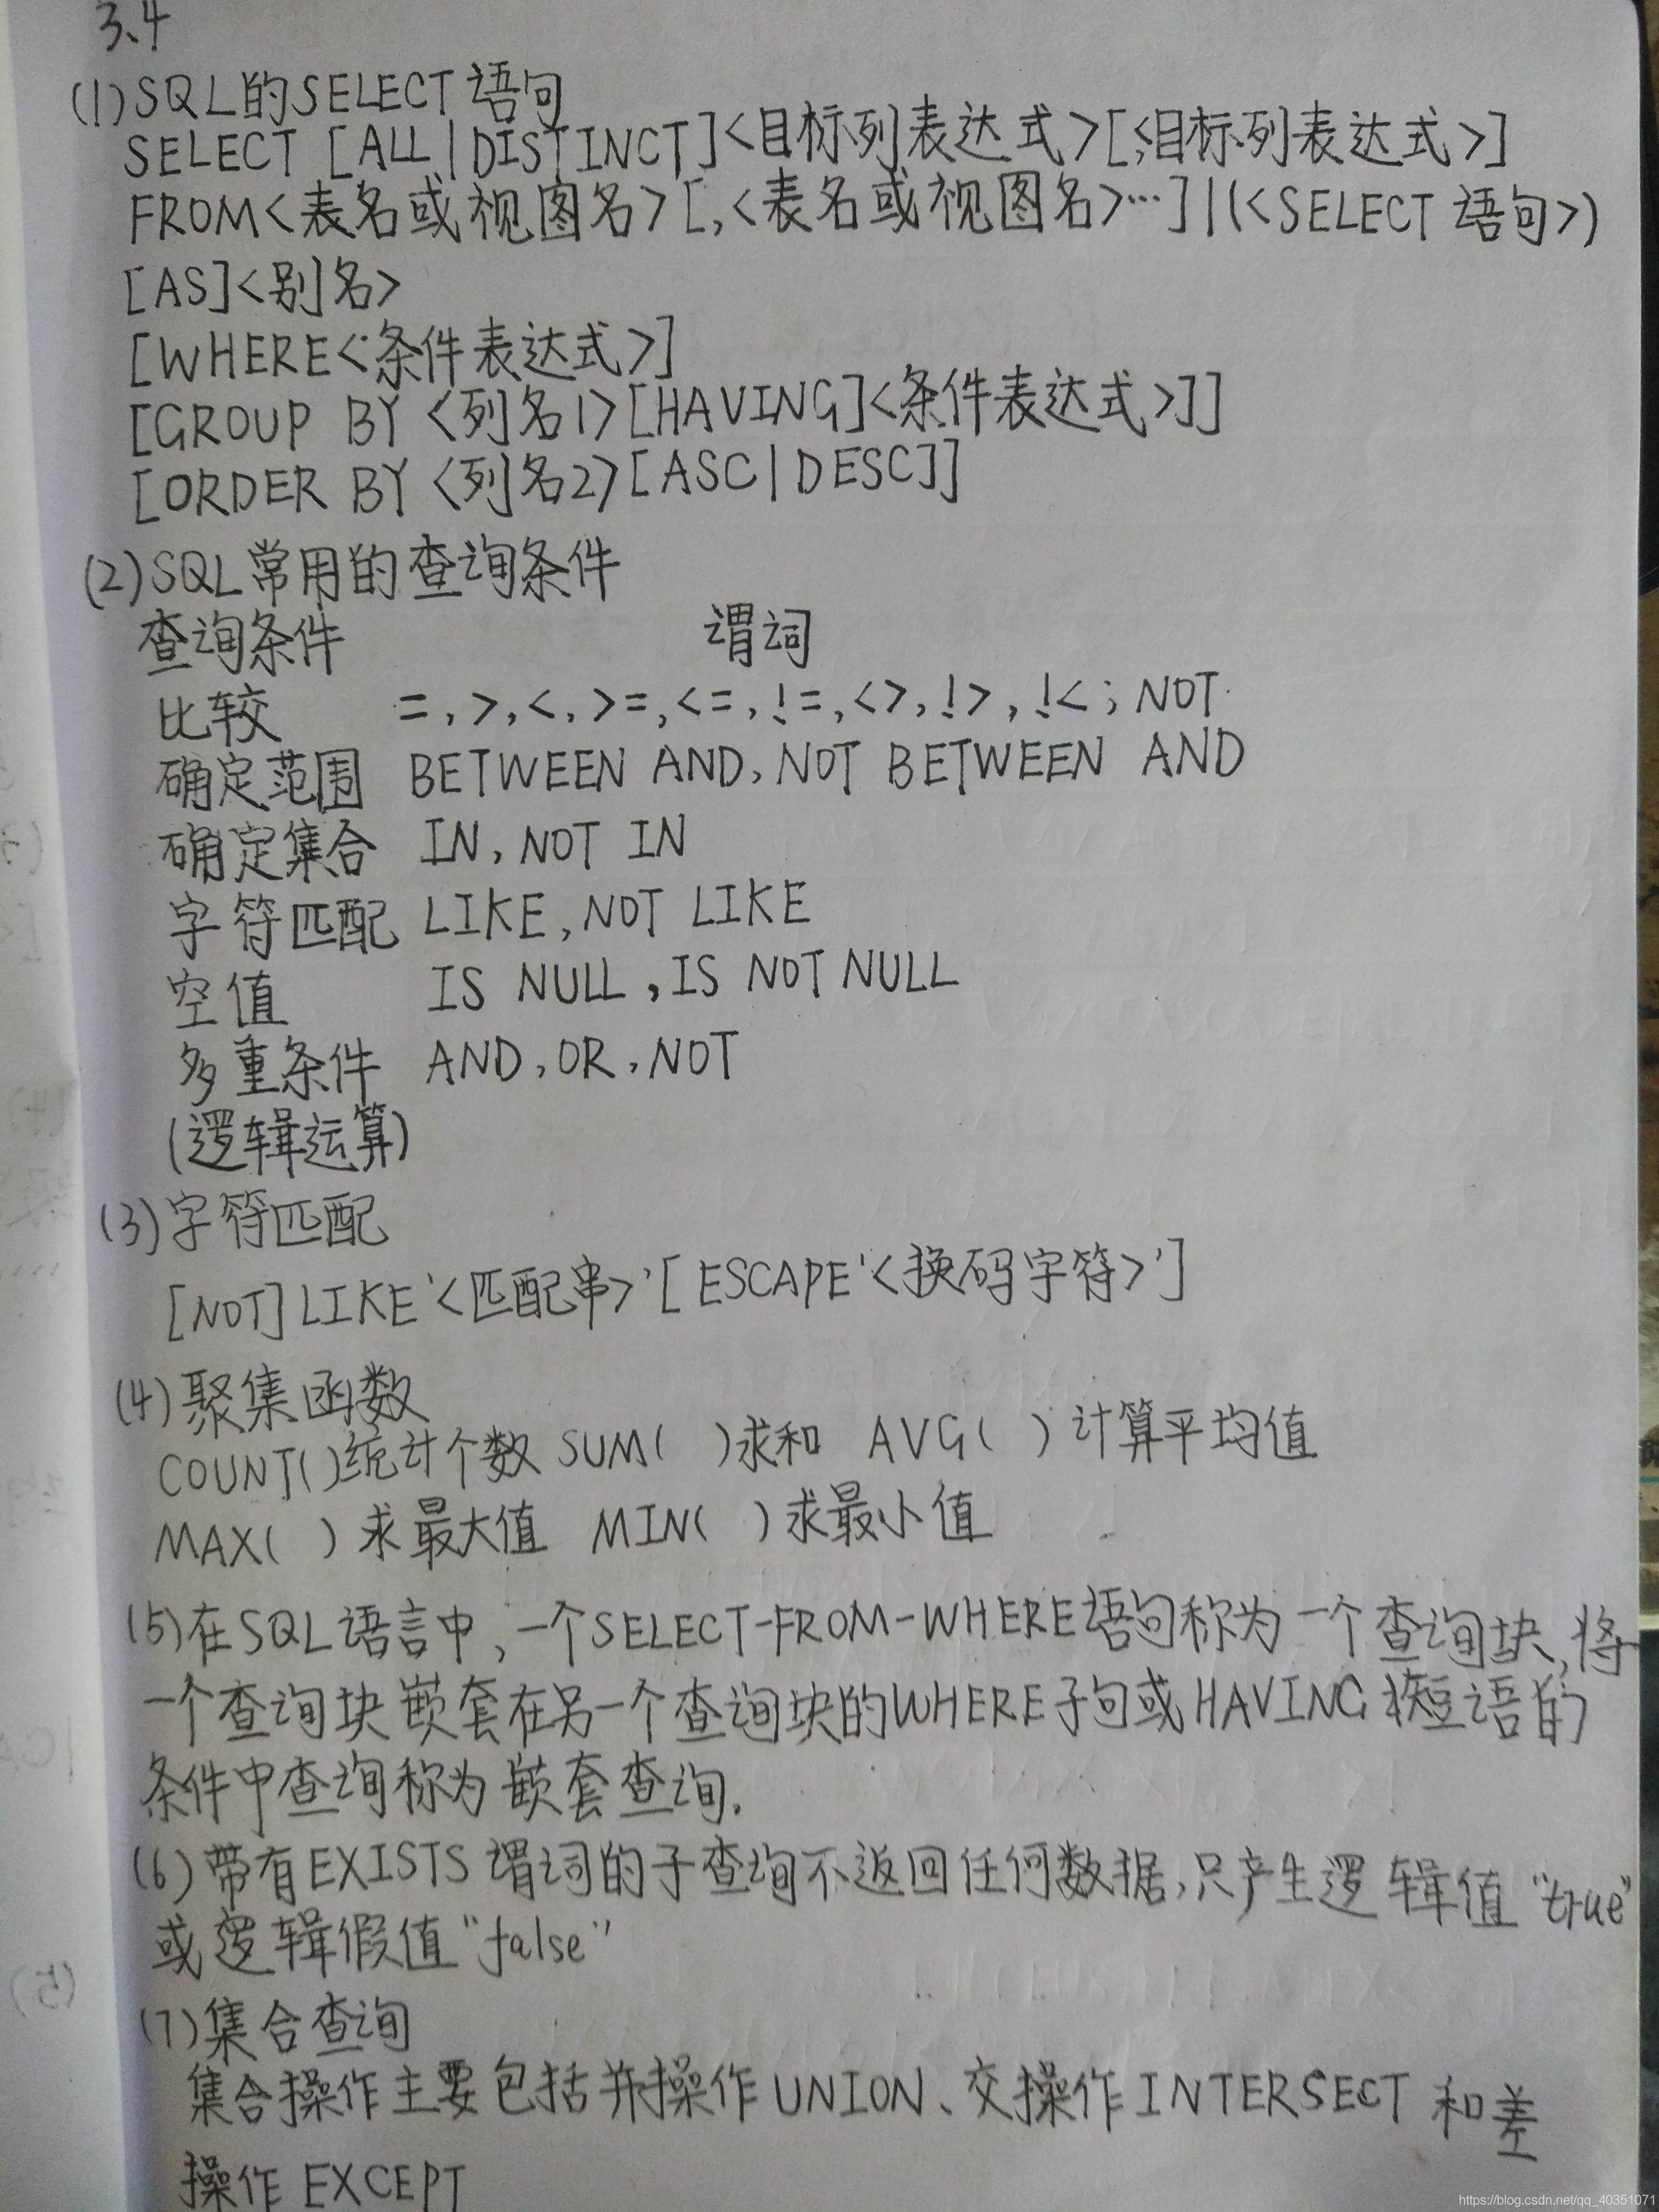 3、4
(1)SQL的SELECT语句
SELECT [ALL|DISTINCT]<目标列表达式>[,<目标列表达式>]
FROM<表名或视图名>[,<表名或视图名>…]|(<SELECT 语句>)
[AS]<别名>
[WHERE<条件表达式>]
[GROUP BY <列名1>[HAVING]<条件表达式>]]
[ORDER BY <列名2>[ASC|DESC]]
(2)SQL常用的查询条件
查询条件 谓词
比较 =,>,<,>=,<=,!=,<>,!>,!<;NOT
确定范围 BETWEEN AND,NOT BETWEEN AND
确定集合 IN,NOT IN
字符匹配 LIKE,NOT LIKE
空值 IS NULL,IS NOT NULL
多重条件 AND,OR,NOT
(逻辑运算)
(3)字符匹配
[NOT]LIKE'<匹配串>'[ESCAPE'<换码字符>']
(4)聚集函数
COUNT()统计个数 SUM( )求和 AVG( )计算平均值
MAX( )求最大值 MIN( )求最小值
(5)在SQL语言中,一个SELECT-FROM-WHERE语句称为一个查询块,将
一个查询块嵌套在另一个查询块的WHERE子句或HAVING短语的
条件中查询称为嵌套查询.
(6)带有EXISTS谓词的子查询不返回任何数据,只产生逻辑值"true"
或逻辑假值"false"
(7)集合查询
集合操作主要包括并操作UNION、交操作INTERSECT和差
操作EXCEPT
https://blog.csdn.net/qq_40351071